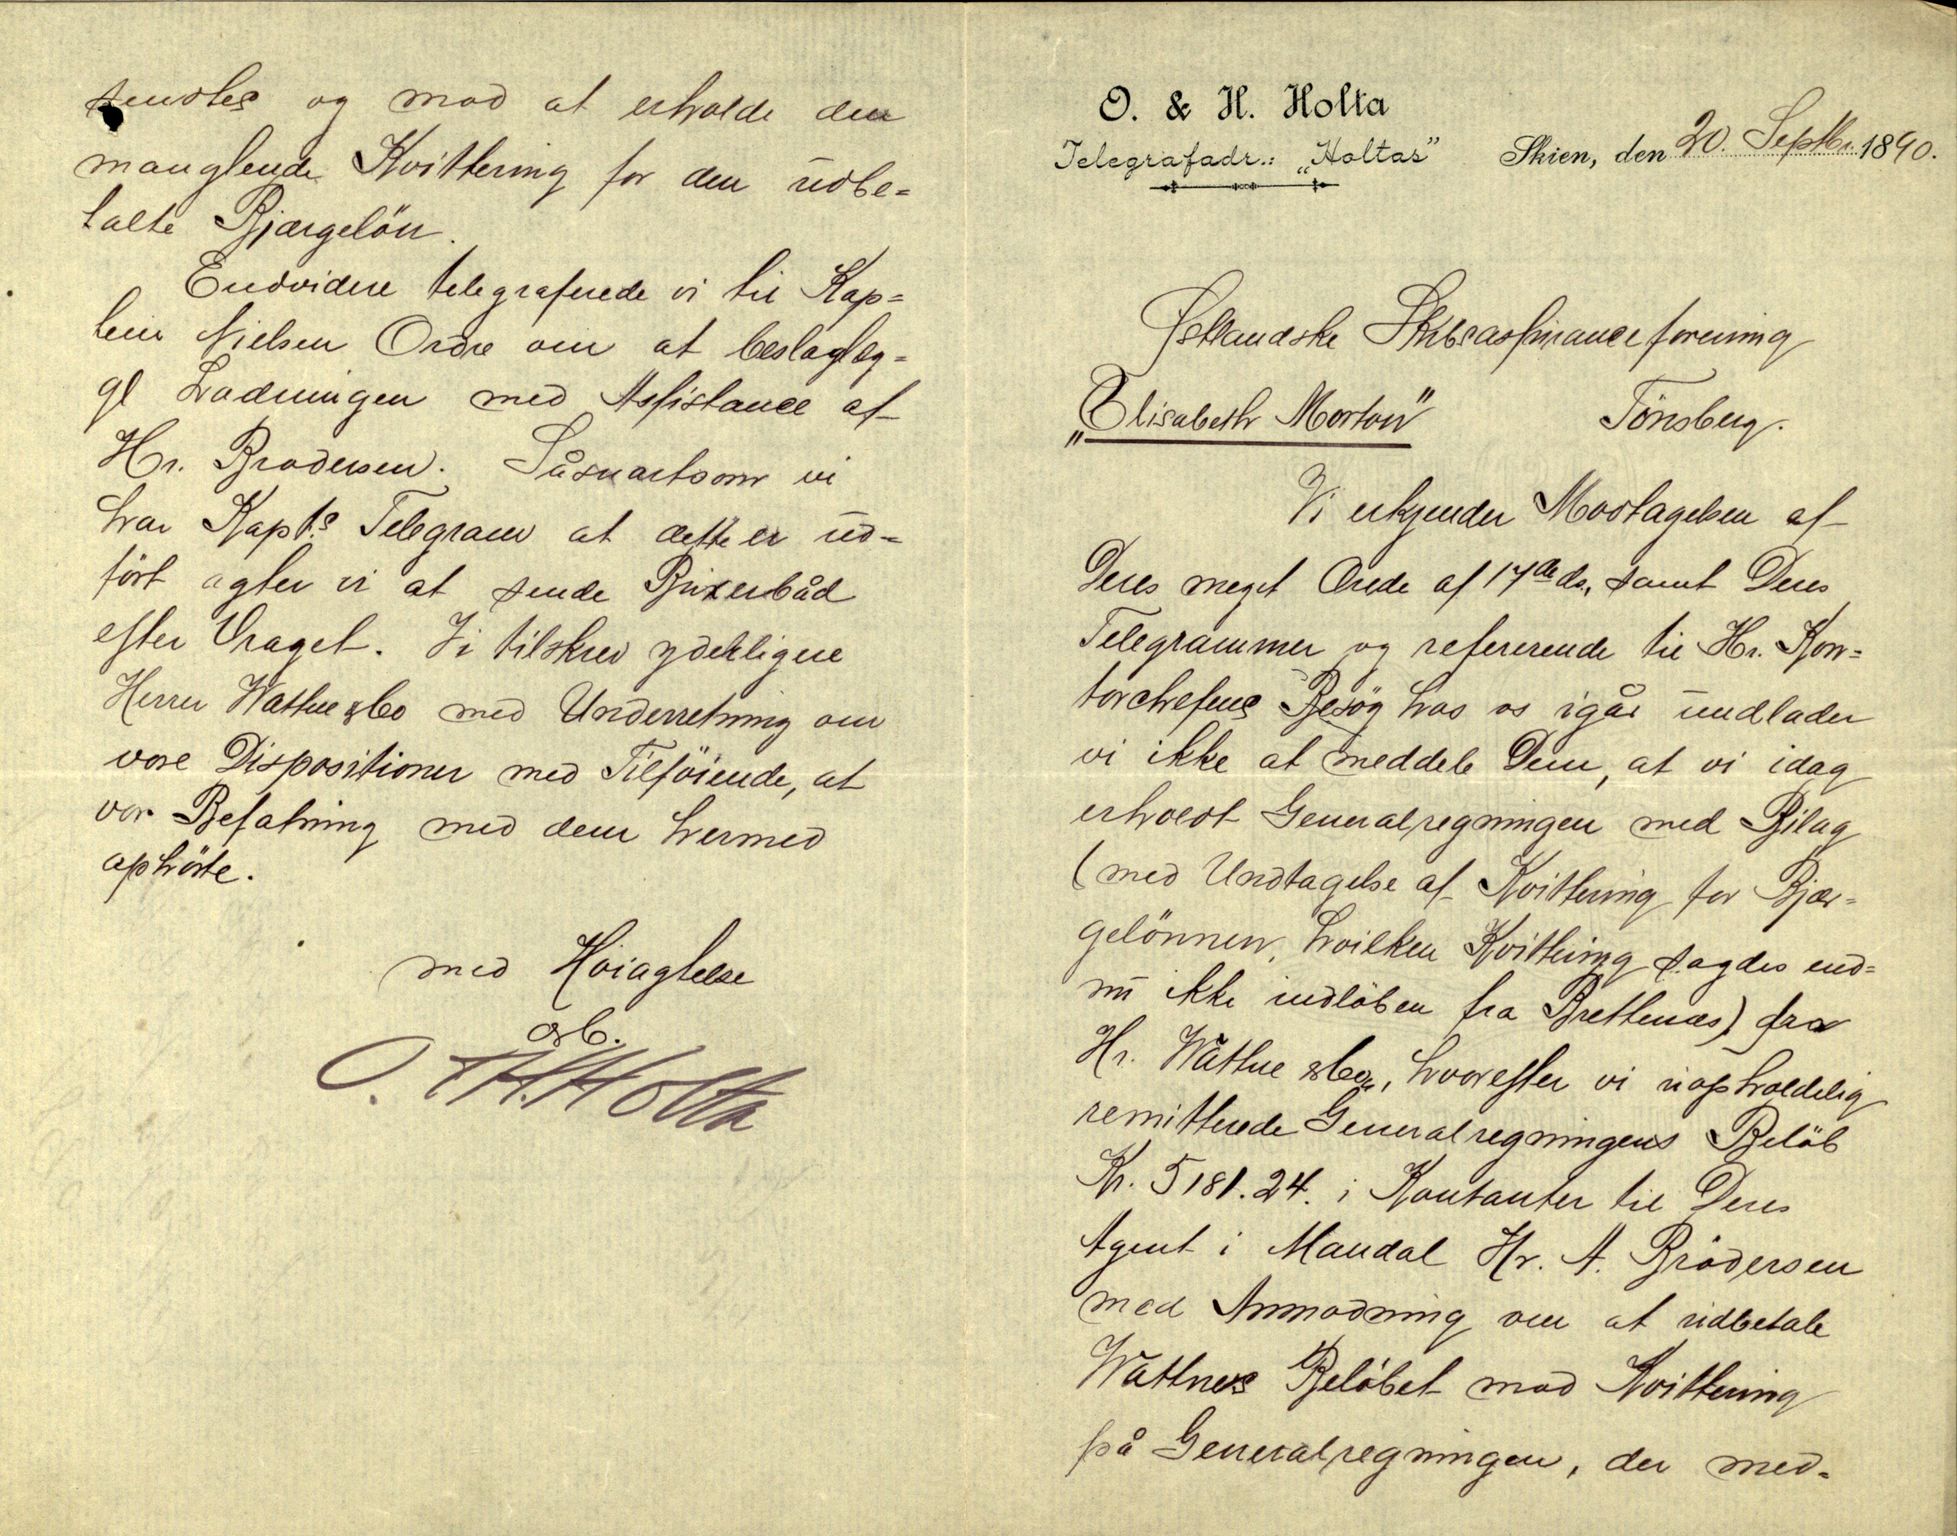 O. & H. Holta
Telegrafadr.: „Holtas”
Skien, den 20. Septbr. 1890.
Østlandske Skibsassuranceforening
„Elisabeth Morton” Tönsberg.
Vi erkjender Modtagelsen af
Deres meget Ærede af 17de ds., samt Deres
Telegrammer og refererende til Hr. Kon=
torchefens Besög hos os igår ŭndlader
vi ikke at meddele Dem, at vi idag
erholdt Generalregningen med Bilag
(med Undtagelse af Kvittering for Bjær=
gelönnen, hvilken Kvittering sagdes end=
nŭ ikke indlöben fra Brettenæs) fra
Hr. Wattne & Co., hvorefter vi ŭopholdelig
remitterede Generalregningens Belöb
Kr. 5181.24. i Kontanter til Deres
Agent i Mandal Hr. A. Brödersen
med Anmodning om at ŭdbetale
Wattnes Belöbet mod Kvittering
på Generalregningen, der med=
sendtes og mod at erholde den
manglende Kvittering for den ŭdbe=
talte Bjærgelön.
Endvidere telegraferede vi til Kap=
tein Nielsen Ordre om at beslaglæg=
ge Ladningen med Assistance af
Hr. Brodersen. Såsnartsom vi
har Kapt.s Telegram at dette er ŭd=
fört agter vi at sende Bŭxerbåd
efter Vraget. Vi tilskrev yderligere
Herrer Wattne & Co med Underretning om
vore Dispositioner med Tilföiende, at
vor Befatning med dem hermed
ophörte.
med Höiagtelse
O. & H. Holta